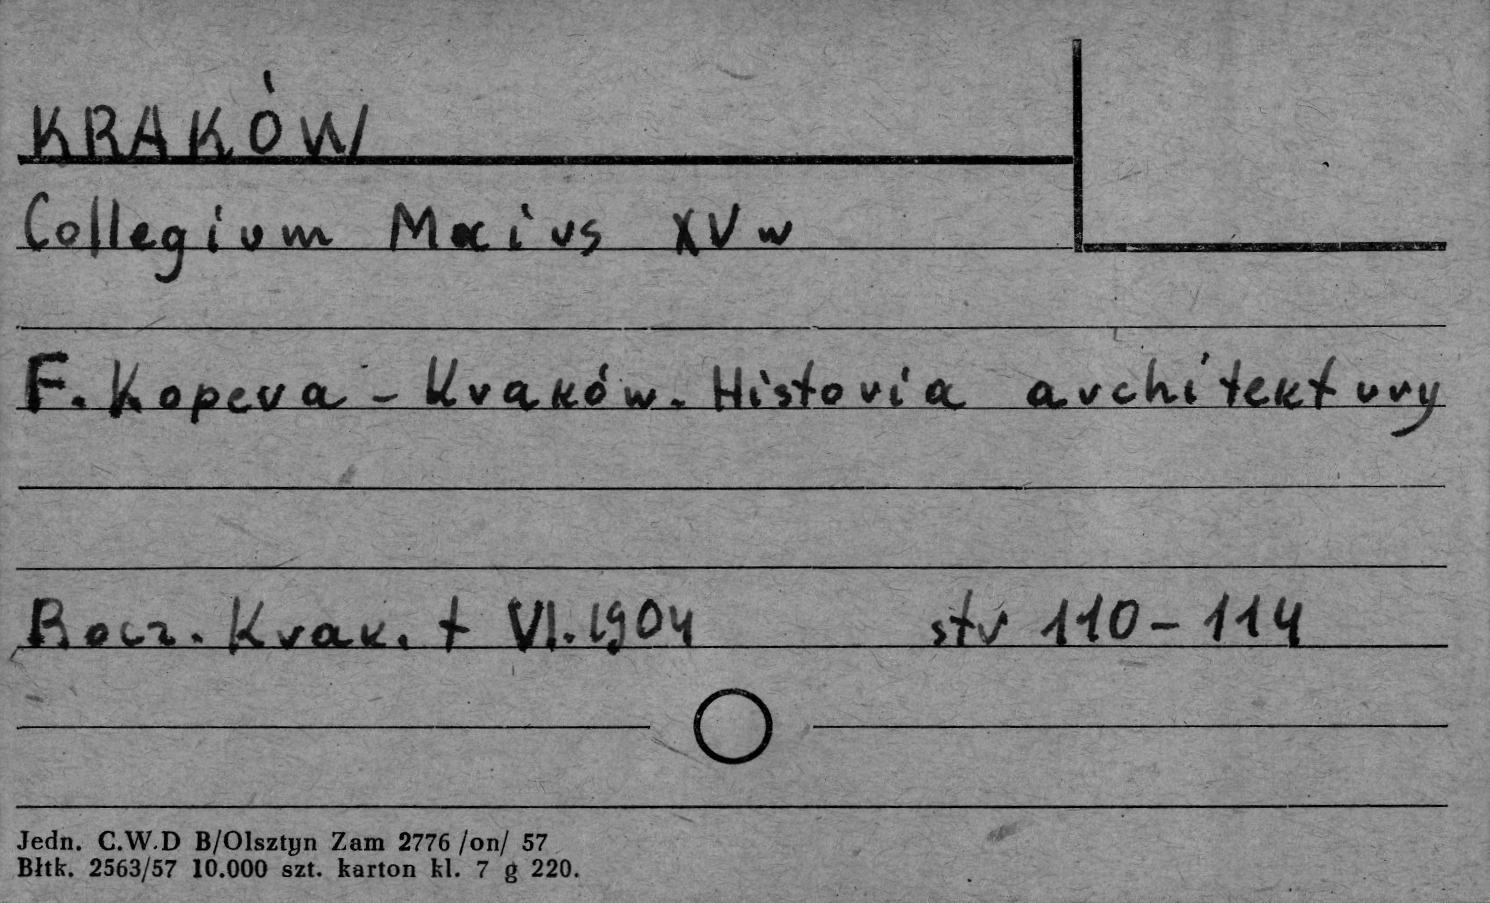 KRAKÓW
Collegium Maius XV w
F. Kopera - Kraków. Historia architektury
Rocz. Krak. t VI. 1904 str 110-114
Jedn. C.W.D B/Olsztyn Zam 2776 /on/ 57
Błtk. 2563/57 10.000 szt. karton kl. 7 g 220.